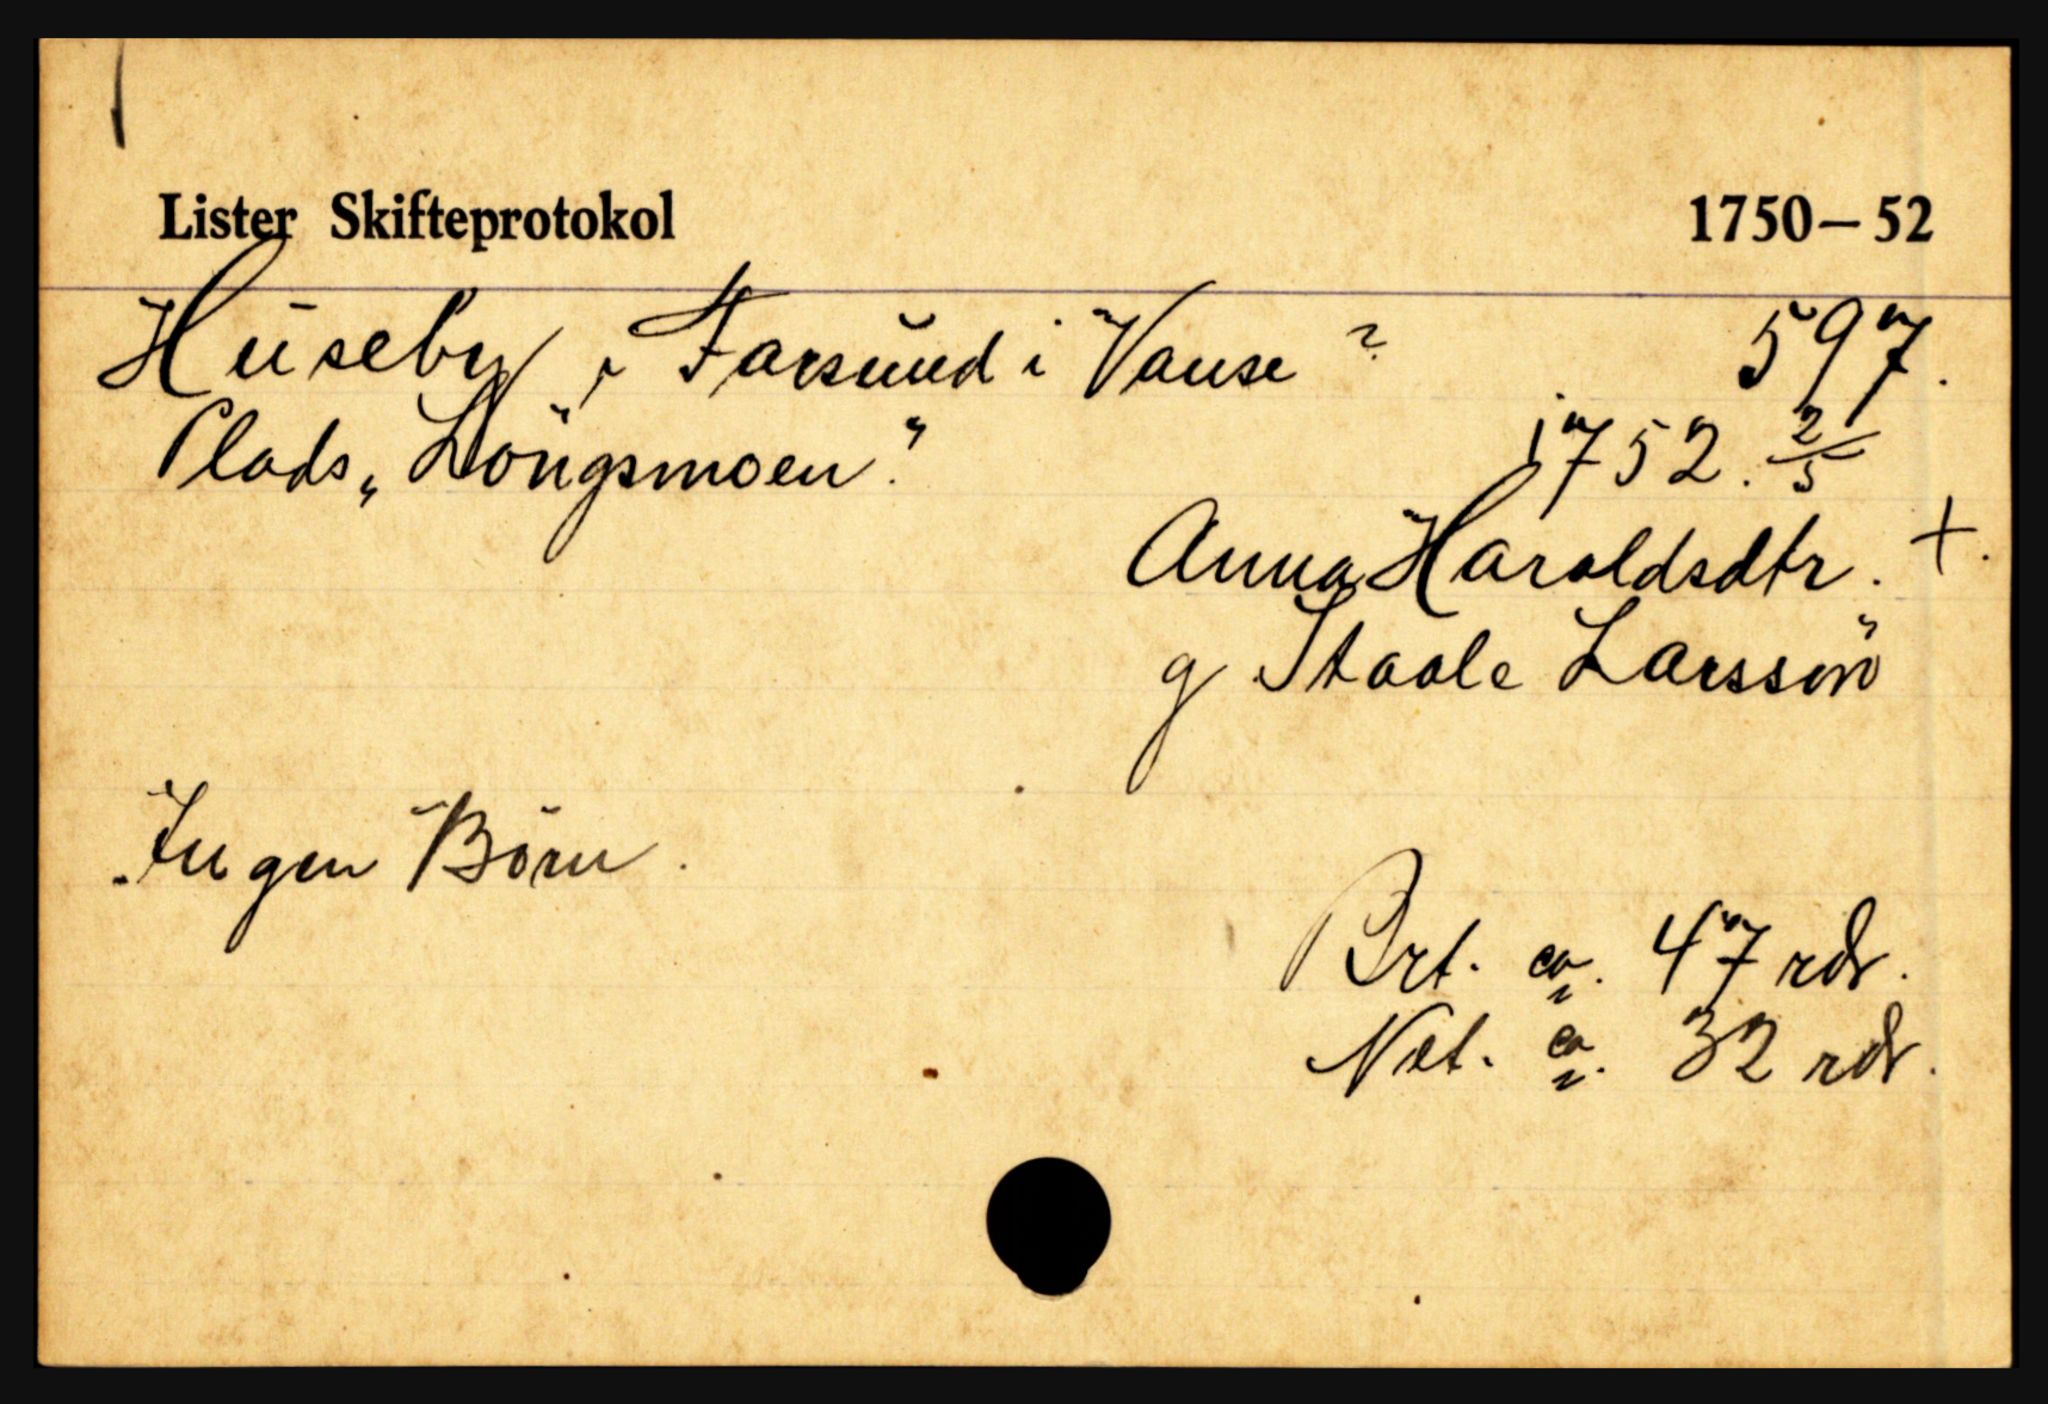 Lister Skifteprotokol 1750–52
Huseby, Farsund i Vanse ? 597.
Plads „Löngsmoen." 1752. 2/5
Anna Haraldsdtr. +.
g Staale Larssön
Ingen Börn.
Brt. ca. 47 rdr.
Net. ca. 32 rdr.